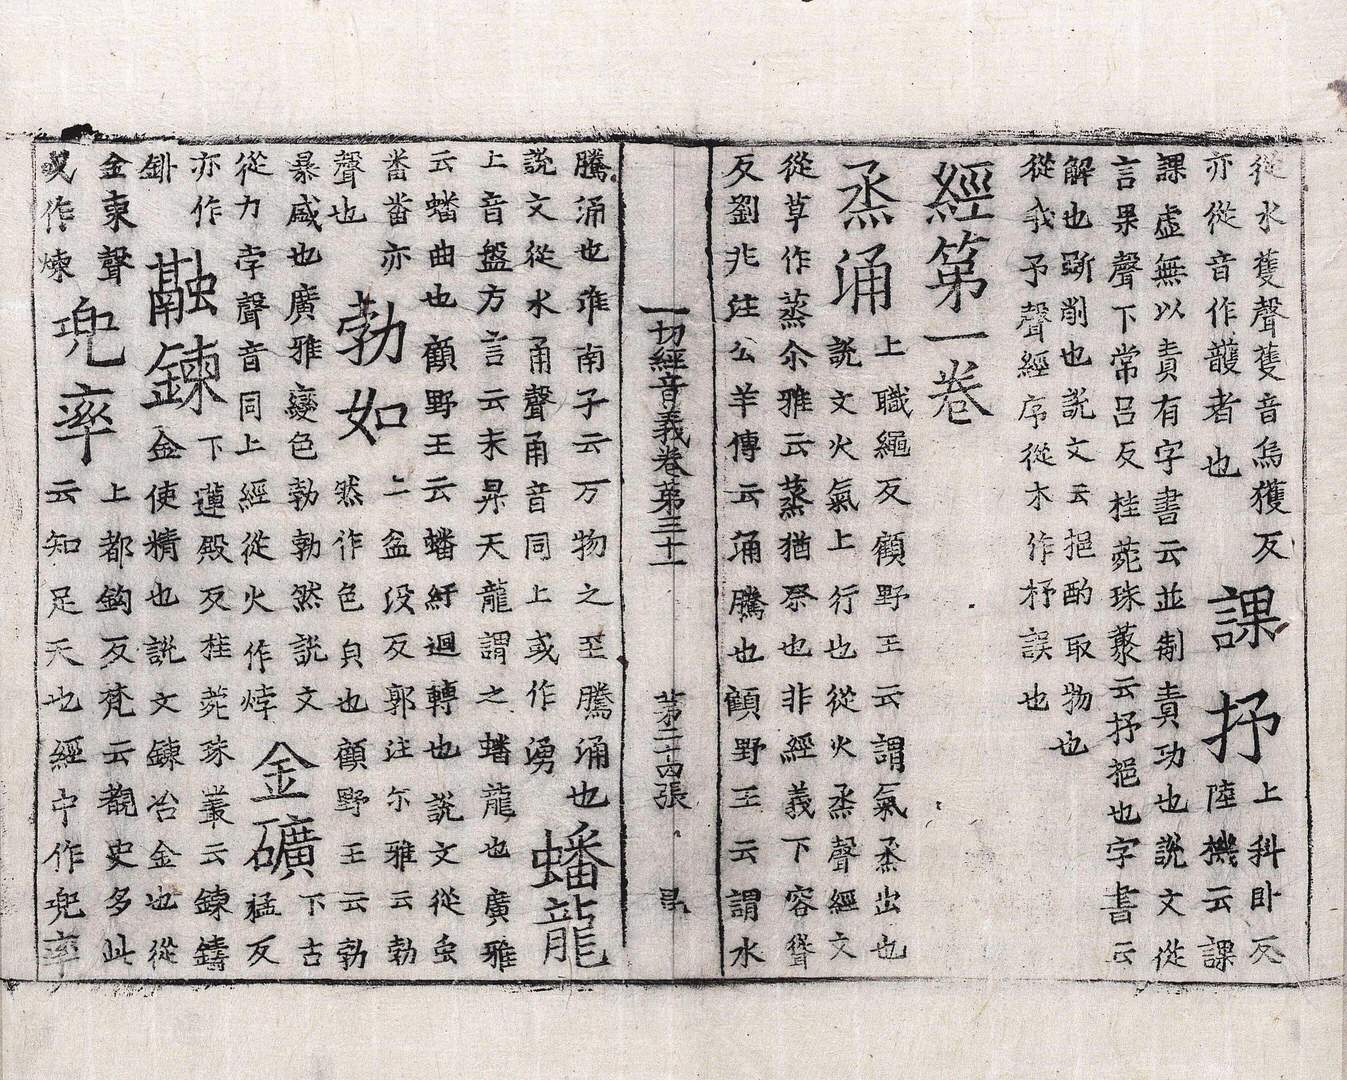 從水蒦聲蒦音烏獲反
亦從音作護者也
課抒
上科卧反
陸機云課
課虛無以責有字書云並制責功也說文從
言果聲下常呂反桂苑珠叢云抒挹也字書云
解也斯削也說文云挹酌取物也
從手予聲經序從木作杼誤也
經第一卷
烝涌
上職繩反顧野王云謂氣烝出也
說文火氣上行也從火烝聲經文
從草作蒸尒雅云蒸猶祭也非經義下容聳
反劉兆注公羊傳云涌騰也顧野王云謂水
一切經音義卷第三十一 第二十四張
騰涌也淮南子云万物之至騰涌也
說文從水甬聲甬音同上或作湧
蟠龍
上音盤方言云未昇天龍謂之蟠龍也廣雅
云蟠曲也顧野王云蟠紆迴轉也說文從虫
番番亦
聲也
勃如
上盆没反郭注尒雅云勃
然作色皃也顧野王云勃
暴盛也廣雅變色勃勃然說文
從力孛聲音同上經從火作烰
金礦
下古
猛反
亦作
釙
融鍊
下蓮殿反桂苑珠叢云鍊鑄
金使精也說文鍊冶金也從
金柬聲
又作煉
兜率
上都鈎反梵云覩史多此
云知足天也經中作兜率